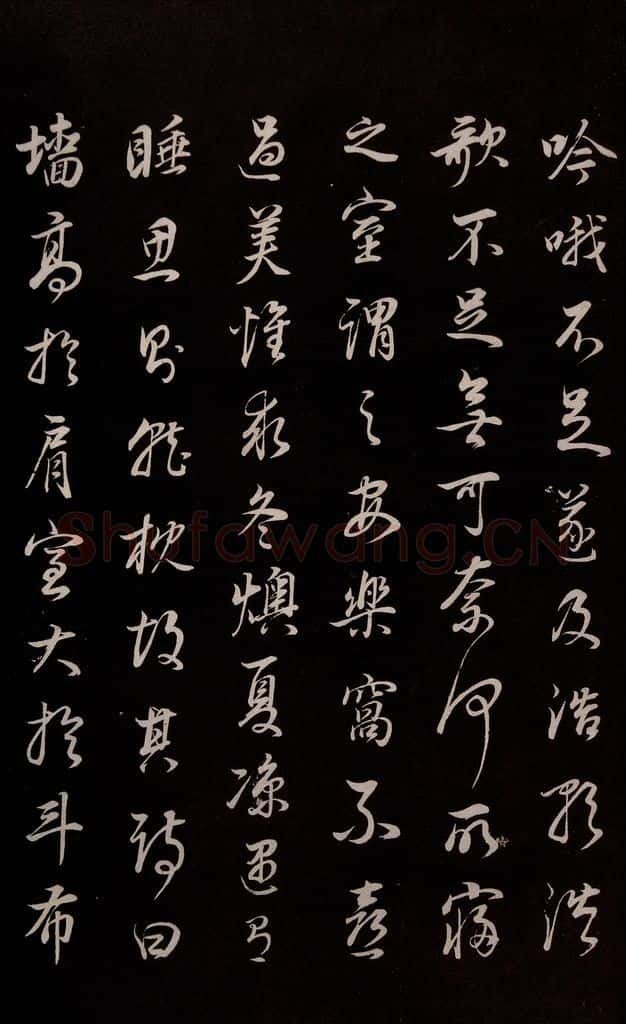 吟哦不足遂及浩歌浩
歌不足無可奈何所寢
之室謂之安樂窩不喜
過美惟求冬燠夏涼遇有
睡思則就枕故其詩曰
墻高於肩室大於斗布
Shufawang.CN